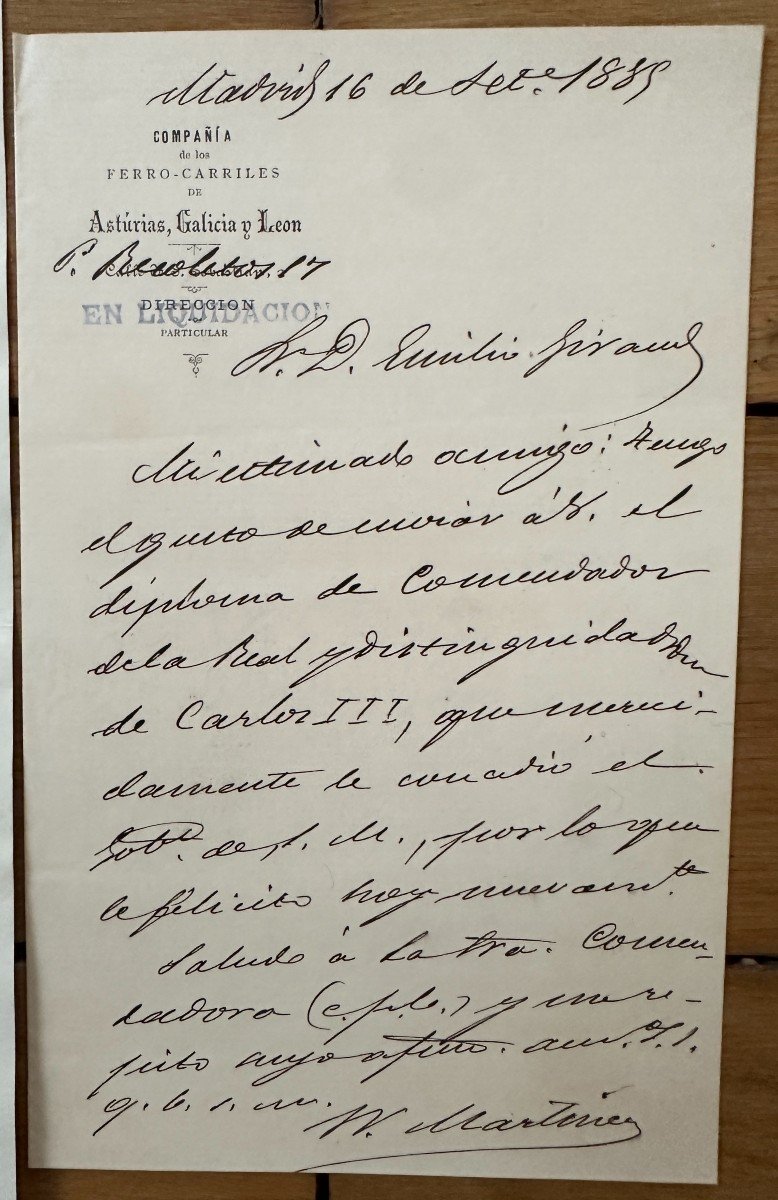 Madrid 16 de Set.e 1885
COMPAÑÍA
de los
FERRO-CARRILES
DE
Astúrias, Galicia y Leon
P. Recoletos 17
DIRECCION
EN LIQUIDACION
PARTICULAR
Sr. D. Emilio Giraud
Mi estimado amigo: Tengo
el gusto de enviar á V. el
diploma de Comendador
de la Real y distinguida Orden
de Carlos III, que mereci-
damente le concedió el
Gob.no de S. M., por lo que
le felicito hoy nuevam.te
Saludo á la Sra. Comen-
dadora (c.p.b.) y me re-
pito suyo afmo. am. S. S.
q. b. s. m.
W. Martinez